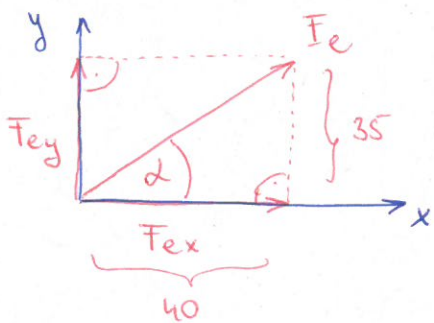 y
Fe
Fey
35
α
x
Fex
40